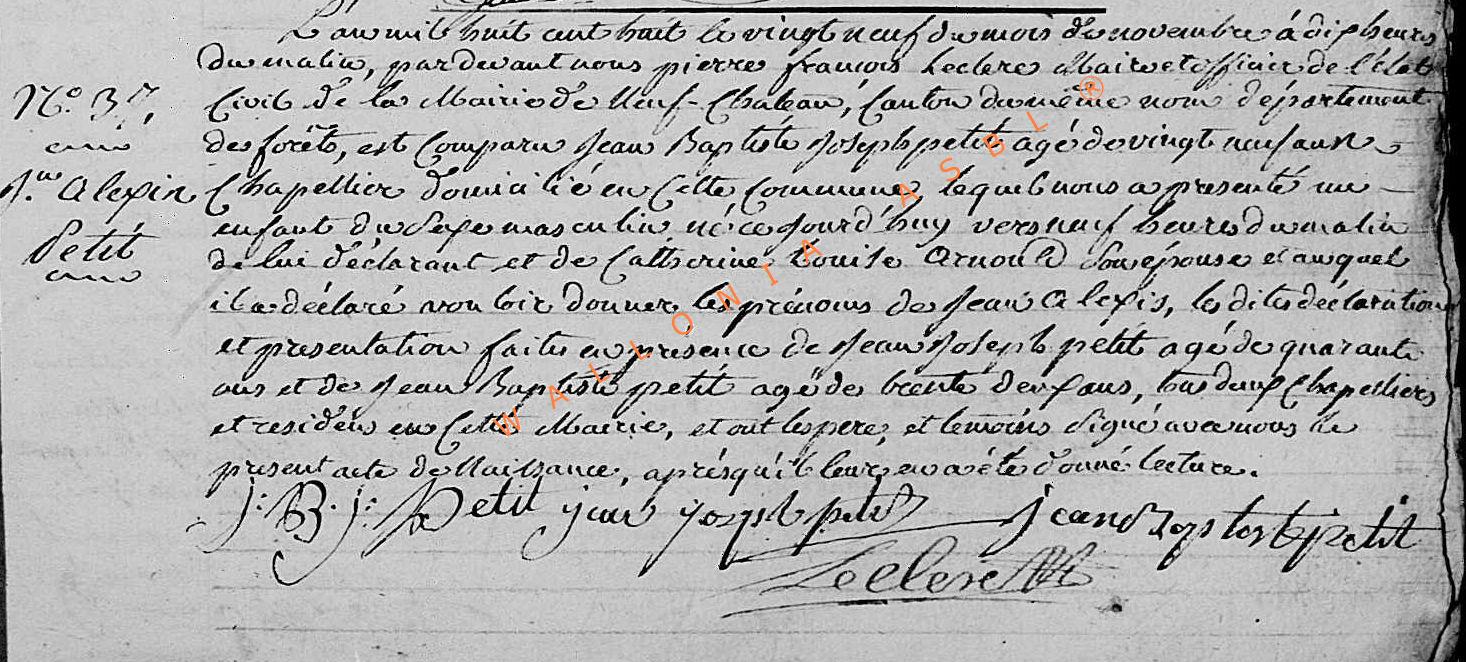 L'an mil huit cent huit le vingt neuf du mois de novembre à dix heures
du matin, pardevant nous pierre françois Leclere Maire et officier de l'état
N.o 37.
Civil de la Mairie de Neuf-Chateau, Canton du même nom département
des forêts, est Comparu Jean Baptiste Joseph petit agé de vingt neuf ans
J.n Alexis
Chapellier domicilié en Cette Commune, lequel nous a presenté un
enfant du Sexe masculin né ce jourd'huy vers neuf heures du matin
Petit
de lui déclarant et de Catherine Louise Arnould Son épouse et auquel
il a déclaré vouloir donner les prénoms de Jean Alexis, les dites déclaration
et presentation faites en presence de Jean Joseph pétit agé de quarante
ans et de Jean Baptiste petit agé de trente deux ans, tous deux Chapelliers
et residens en Cette Mairie, et ont les pere, et temoins Signé avec nous le
present acte de Naissance, après qu'il leur en a été donné lecture.
J: B. J: Petit jean joseph petit jean Baptiste petit
Leclere
WALLONIA ASBL ®